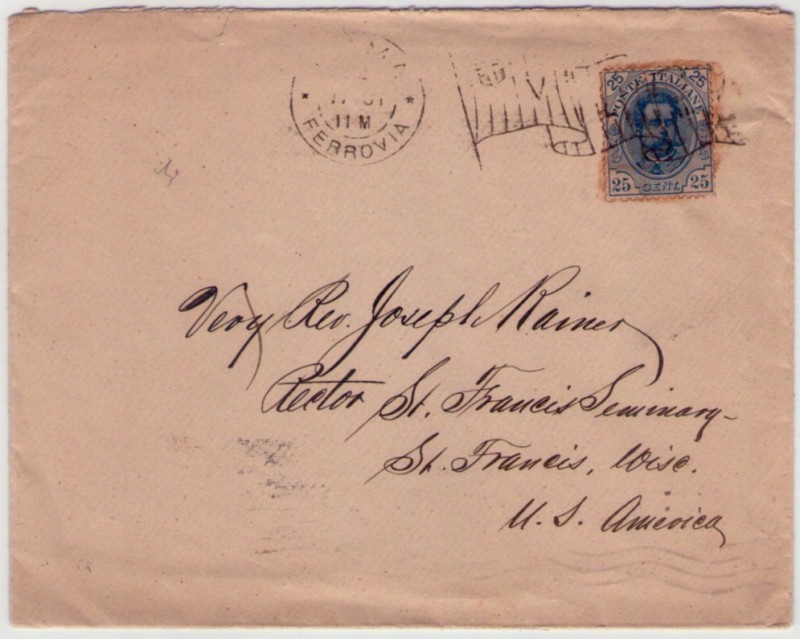 FERROVIA
11 M
25 25
POSTE ITALIANE
25 CENT. 25
Very Rev. Joseph Rainer
Rector St. Francis Seminary
St. Francis, Wisc.
U. S. America